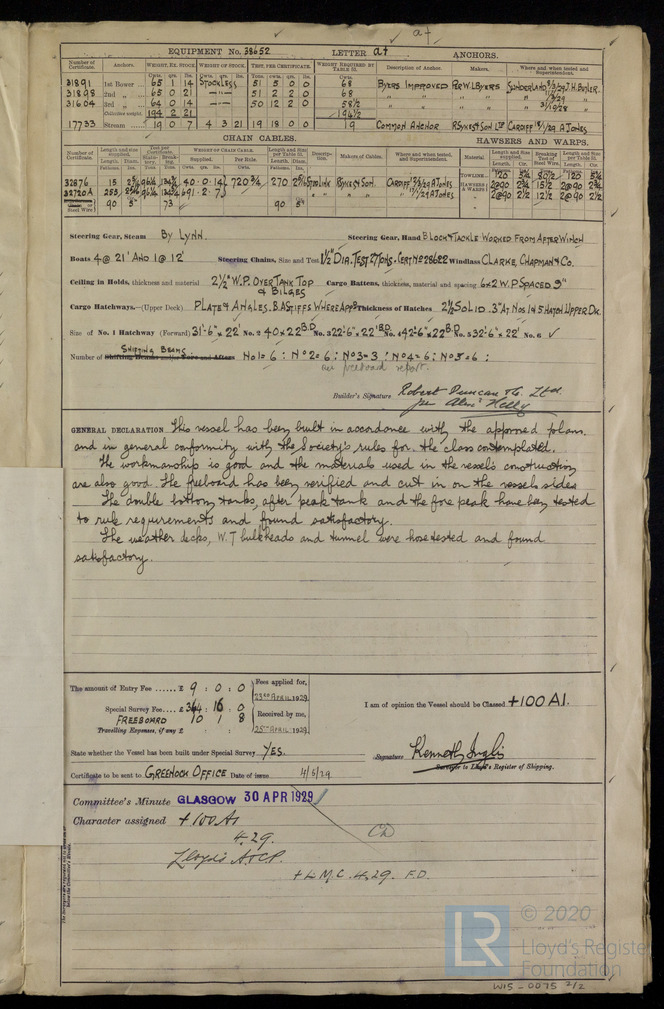 at
EQUIPMENT No. 38652 LETTER at ANCHORS.
Number of Certificate. Anchors. WEIGHT, EX. STOCK WEIGHT OF STOCK. TEST, PER CERTIFICATE. WEIGHT REQUIRED BY TABLE 31. Description of Anchor. Makers. Where and when tested and Superintendent.
Cwts. qrs. lbs. Cwts. qrs. lbs. Tons. cwts. qrs. lbs. Cwts.
31891 1st Bower 65 1 14 STOCKLESS 51 5 0 0 68 BYERS IMPROVED PER W.L BYERS SUNDERLAND J.H. BUTLER.
31898 2nd „ 65 0 21 51 2 2 0 68
31604 3rd „ 64 0 14 50 12 2 0 58½
Collective weight 194 2 21 194½
17733 Stream 19 0 7 4 3 21 19 18 0 0 19 COMMON ANCHOR R SYKES & SON LTD CARDIFF 18/1/29 A JONES
CHAIN CABLES. HAWSERS AND WARPS.
Number of Certificate. Length and size supplied. Test per Certificate. WEIGHT OF CHAIN CABLE. Length and size per Table 31. Description. Makers of Cables. Where and when tested, and Superintendent. Material Length and size supplied. Breaking Test of Steel Wire. Length and size per Table 31.
Length. Diam. Supplied. Per Rule. Length. Diam. Length. Cir. Length. Cir.
32876 15 40.0.14 720¾ 270 2 5/16 STUD LINK R SYKES & SON. CARDIFF A JONES TOWLINE 120
32720A 255 691.2.7 A JONES HAWSERS & WARPS 2@90 2¾ 15½ 2@90 2¾
90 5" 73 90 5" 2@90 2½ 12½ 2@90 2½
Steering Gear, Steam BY LYNN. Steering Gear, Hand BLOCK & TACKLE WORKED FROM AFTER WINCH
Boats 4 @ 21' AND 1 @ 12' Steering Chains, Size and Test 1½" DIA. TEST 27 TONS. CERT NO 28622 Windlass CLARKE, CHAPMAN & CO.
Ceiling in Holds, thickness and material 2½" W.P. OVER TANK TOP & BILGES Cargo Battens, thickness, material and spacing 6 x 2 W.P SPACED 9"
Cargo Hatchways.—(Upper Deck) PLATE & ANGLES. B.A STIFFS WHERE APPD Thickness of Hatches 2½ SOLID. 3" AT NOS 1 & 5 HATCH UPPER DK.
Size of No. 1 Hatchway (Forward) 31'-6" x 22' No. 2 40 x 22 B.D. No. 3 22'-6" x 22' B.D. No. 4 42'-6" x 22 B.D. No. 5 32'-6" x 22' No. 6 ✓
Number of SHIFTING BEAMS No 1 = 6 : No 2 = 6 : No 3 = 3 : No 4 = 6 : No 5 = 6 :
see freeboard report.
Builder's Signature Robert Duncan & Co. Ltd
per Alex Kelly
GENERAL DECLARATION. This vessel has been built in accordance with the approved plans.
and in general conformity with the Society's rules for the class contemplated.
The workmanship is good and the materials used in the vessel's construction
are also good. The freeboard has been verified and cut in on the vessels sides
The double bottom tanks, after peak tank and the fore peak have been tested
to rule requirements and found satisfactory.
The weather decks, W.T bulkheads and tunnel were hose tested and found
satisfactory.
The amount of Entry Fee ...... £ 9 : 0 : 0 Fees applied for, 23RD APRIL 1929
Special Survey Fee .... £ 364 : 16 : 0 I am of opinion the Vessel should be Classed +100 A1.
FREEBOARD 10 1 8 Received by me,
Travelling Expenses, if any £ : : 25TH APRIL 1929
State whether the Vessel has been built under Special Survey YES. Signature Kenneth Inglis
Surveyor to Lloyd's Register of Shipping.
Certificate to be sent to GREENOCK OFFICE Date of issue 4/5/29
Committee's Minute GLASGOW 30 APR 1929
Character assigned +100 A1
4.29. CD
Lloyd's A&CP.
+ L.M.C. 4.29. F.D.
LR © 2020
Lloyd's Register
Foundation
W15-0075 2/2